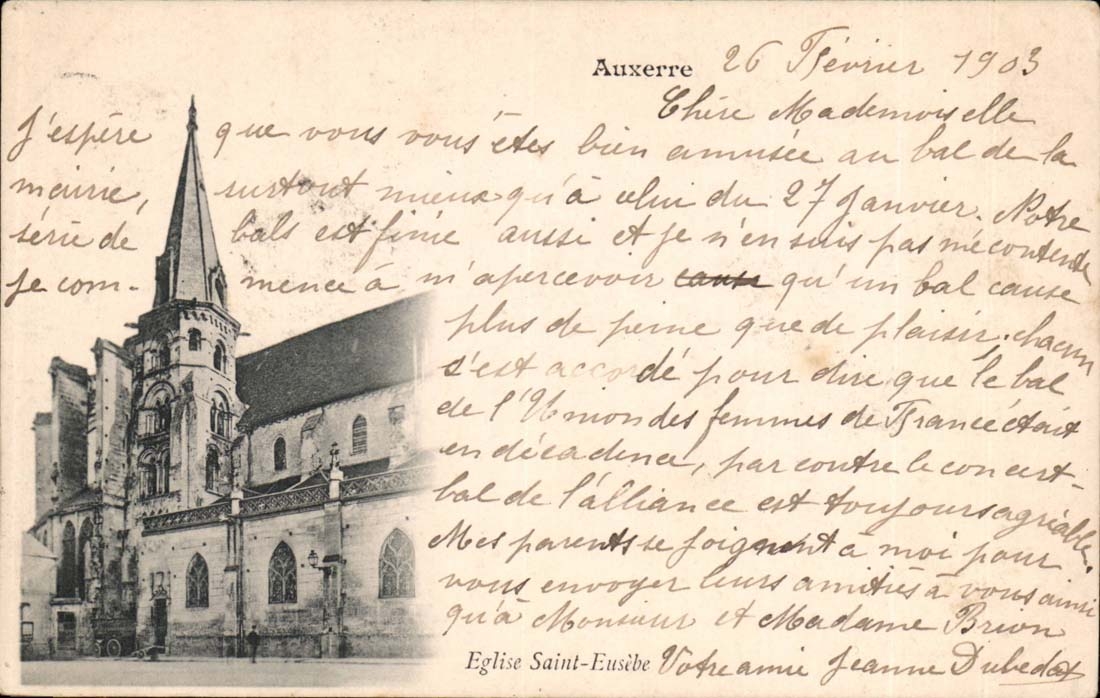 Auxerre 26 Février 1903
Chère Mademoiselle
J'espère que vous vous êtes bien amusée au bal de la
mairie, surtout mieux qu'à celui du 27 Janvier. Notre
série de bals est finie aussi et je n'en suis pas mécontente
je com- mence à m'apercevoir cause qu'un bal cause
plus de peine que de plaisir; chacun
s'est accordé pour dire que le bal
de l'Union des femmes de France était
en décadence, par contre le concert-
bal de l'alliance est toujours agréable.
Mes parents se joignent à moi pour
vous envoyer leurs amitiés à vous ainsi
qu'à Monsieur et Madame Brion
Eglise Saint-Eusèbe Votre amie Jeanne Dubedat